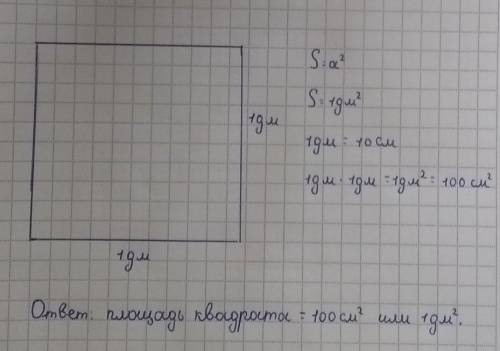 S=a²
S=1дм²
1дм
1дм = 10см
1дм · 1дм =1дм² = 100 см²
1дм
Ответ: площадь квадрата = 100 см² или 1дм².